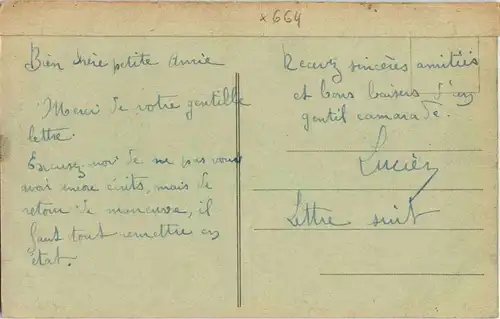 x 664
Bien chère petite amie
Merci de votre gentille
lettre.
Excusez moi de ne pas vous
avoir encore écrits, mais de
retour de manœuvre, il
faut tout remettre en
état.
Recevez sincères amitiés
et bons baisers d'un
gentil camarade.
Lucien
Lettre suit